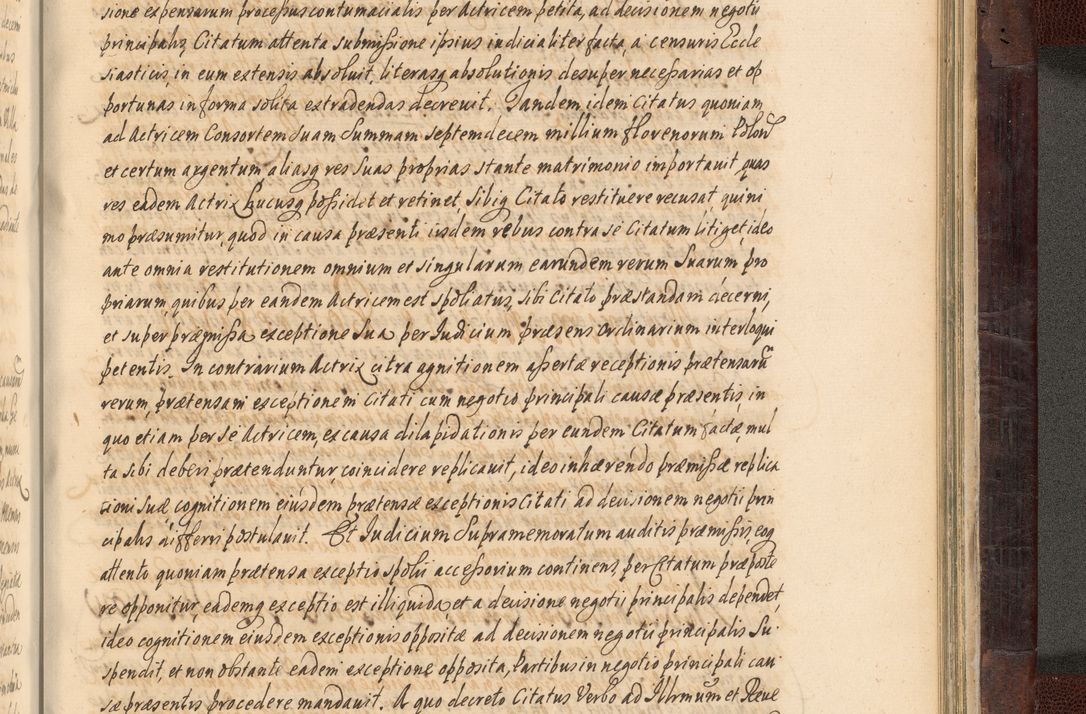 sione expensarum processus contumacialis per Actricem petita, ad decisionem negotii
principalis Citatum attenta submissione ipsius iudicialiter facta, a censuris Eccle
siasticis, in eum extensis absoluit, literasq absolutionis desuper necessarias et op
portunas in forma solita extradendas decreuit. Tandem idem Citatus quoniam
ad Actricem Consortem suam Summam septemdecem millium florenorum Polon
et certum argentum aliasq res suas proprias stante matrimonio importauit quas
res eadem Actrix hucusq possidet et retinet, sibiq Citato restituere recusat quini
mo præsumitur, quod in causa præsenti iisdem rebus contra se Citatum litiget, ideo
ante omnia restitutionem omnium et singularum earundem rerum suarum pro
priarum, quibus per eandem Actricem est spoliatus, sibi Citato præstandam decerni,
et super præmissa exceptione sua per Iudicium præsens ordinarium interloqui
petentis. In contrarium Actrix citra agnitionem assertæ receptionis prætensarū
rerum, prætensam exceptionem Citati cum negotio principali causæ præsentis, in
quo etiam per se Actricem, ex causa dilapidationis per eundem Citatum factæ, mul
ta sibi deberi prætenduntur, coincidere replicauit, ideo inhærendo præmissæ replica
tioni suæ cognitionem eiusdem prætensæ exceptionis Citati ad decisionem negotii prin
cipalis differri postulauit. Et Iudicium supramemoratum auditis præmissis, eoq
attento quoniam prætensa exceptio spolii accessorium continens, per Citatum præposte
re opponitur, eademq exceptio est illiquida, et a decisione negotii principalis dependet,
ideo cognitionem eiusdem exceptionis oppositæ ad decisionem negotii principalis su
spendit, et non obstante eadem exceptione opposita, Partibus in negotio principali cau
sæ præsentis procedere mandauit. A quo decreto Citatus Verbo ad Illrmum et Reue